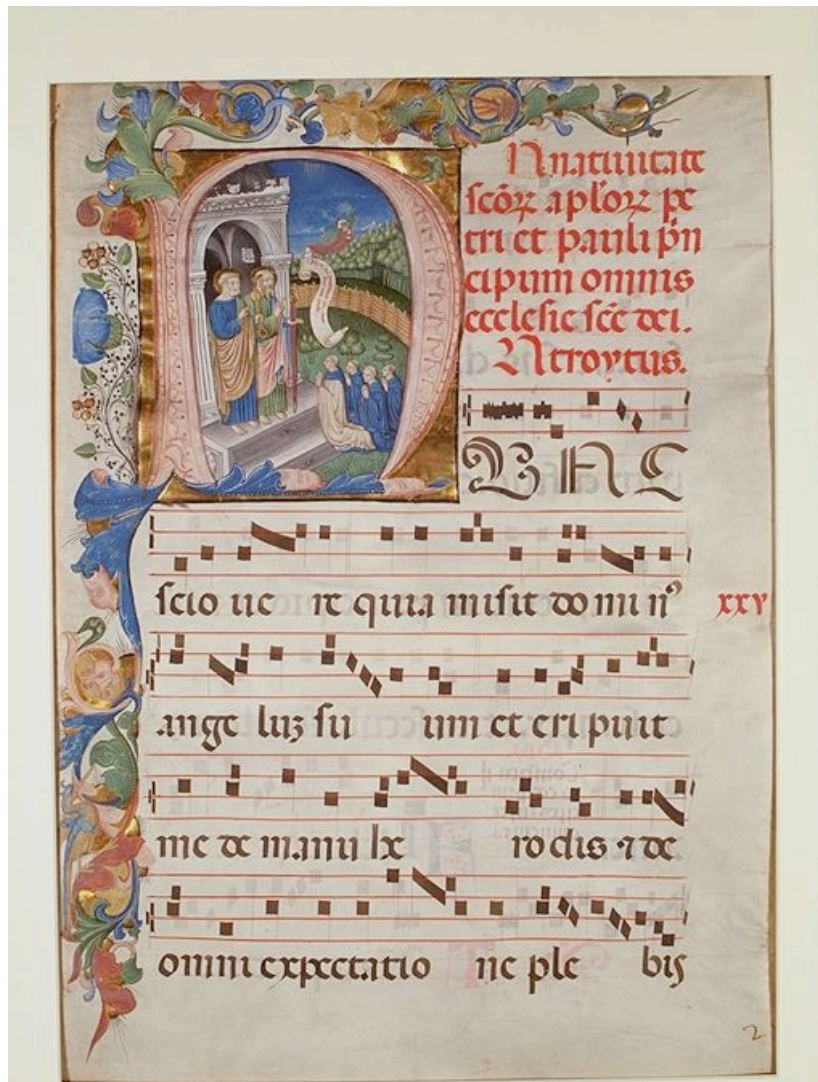 IN natiuitate
scōꝝ aplōꝝ pe
tri et pauli p̄n
cipum omnis
ecclesie scē dei.
INtroytus.
NVNC
scio ue re quia misit do mi nꝰ xxv
ange luꝫ su um et eripuit
me de manu he rodis ⁊ de
omni expectatio ne ple bis
2